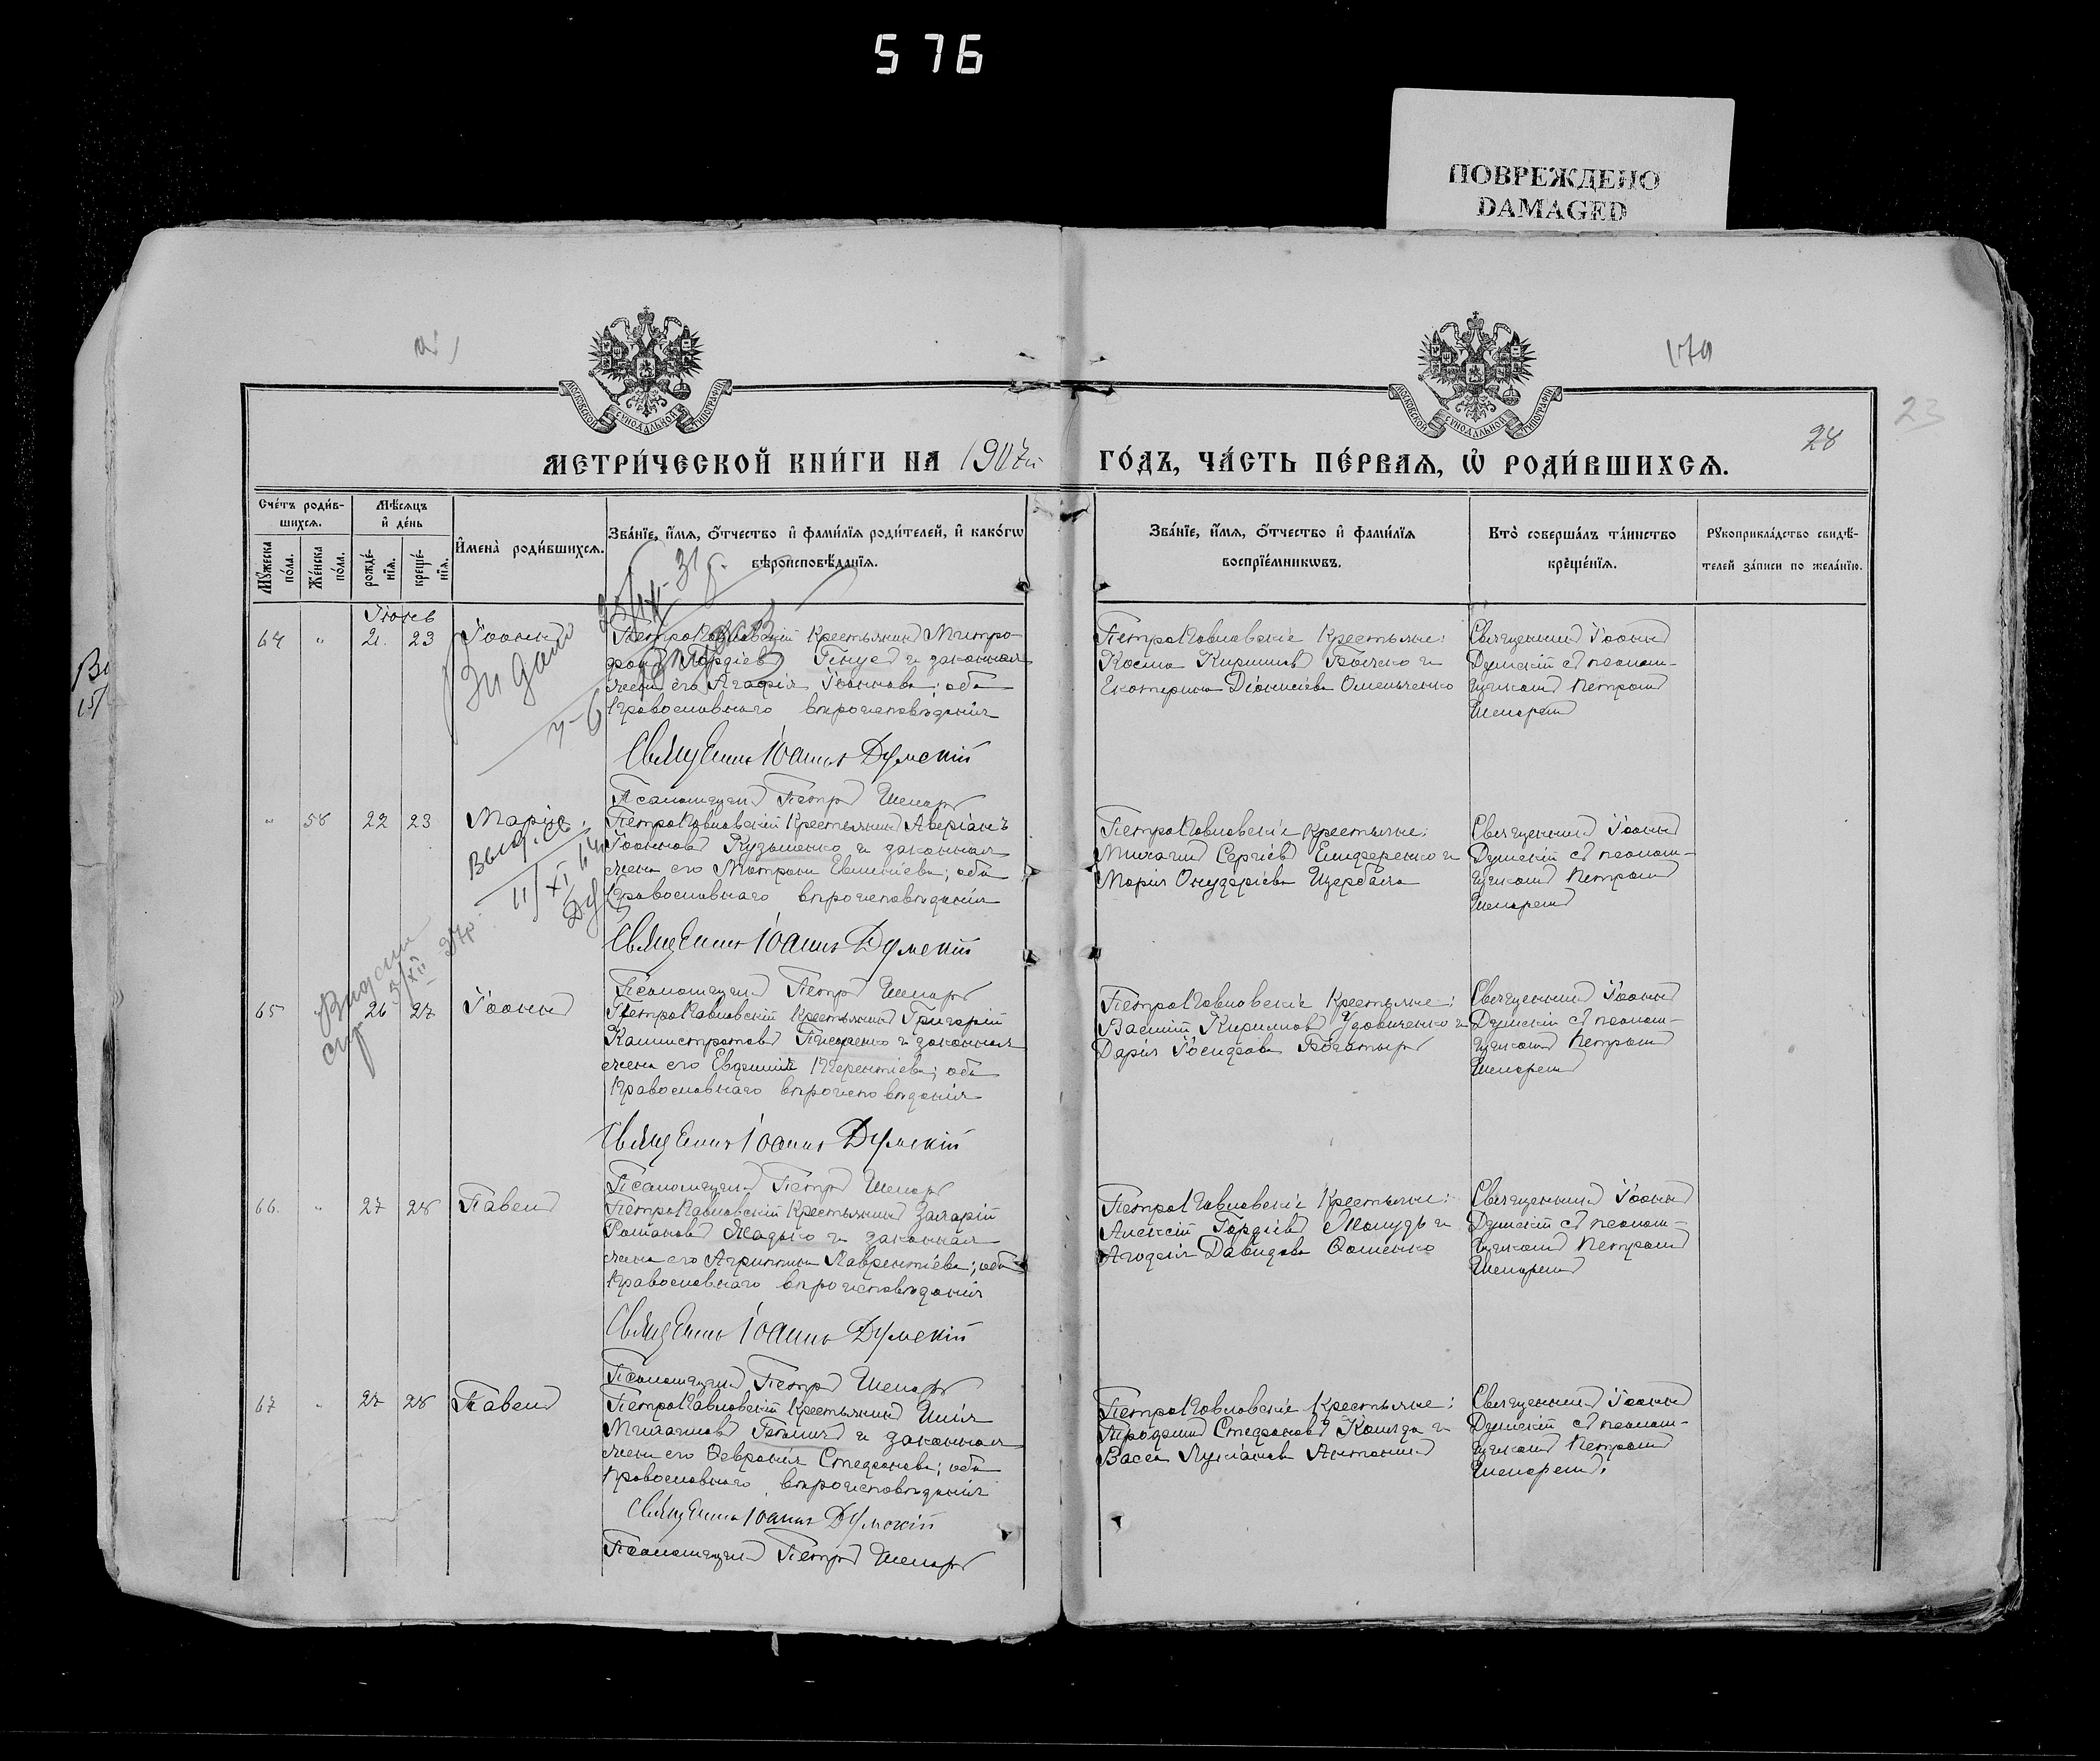 576
ПОВРЕЖДЕНО
DAMAGED
МОСКОВСКОЙ СѴНОДАЛЬНОЙ ТИПОГРАФІИ
МОСКОВСКОЙ СѴНОДАЛЬНОЙ ТИПОГРАФІИ
28
23
МЕТРИ́ЧЕСКОЙ КНИ́ГИ НА 1907й ГО́ДЪ, ЧА́СТЬ ПЕ́РВАѦ, Ѡ҆ РОДИ́ВШИХСѦ.
Сче́тъ роди́в-
шихсѧ.
Мꙋ́жеска по́ла.
Же́нска по́ла.
Мѣ́сѧцъ
и҆ де́нь
рожде́-
нїѧ.
креще́-
нїѧ.
И҆мена̀ роди́вшихсѧ.
Зва́нїе, и҆́мѧ, ѻ҆́тчество и҆ фами́лїѧ роди́телей, и҆ како́гѡ
вѣроисповѣ́данїѧ.
Зва́нїе, и҆́мѧ, ѻ҆́тчество и҆ фами́лїѧ
воспрїе́мникѡвъ.
Кто̀ соверша́лъ та́инство
креще́нїѧ.
Рꙋкоприкла́дство свидѣ́-
телей за́писи по жела́нїю.
Іюнь
64 " 21. 23 Іоаннъ
Петропавловскій крестьянинъ Митро-
фанъ Гордіевъ и законная
жена его Агафія Іоаннова; оба
православнаго вѣроисповѣданія
Священник Іоанн Думскій
Псаломщикъ Петръ
Петропавловскіе крестьяне:
Косма Кириллов Бычко и
Екатерина Діонисіева Омельченко
Священникъ Іоаннъ
Думскій съ псалом-
щикомъ Петромъ
" 58 22 23 Марія
Петропавловскій крестьянинъ Аверіанъ
Іоанновъ Кузьменко и законная
жена его Матрона Евгеніева; оба
православнаго вѣроисповѣданія
Священник Іоанн Думскій
Псаломщикъ Петръ
Петропавловскіе крестьяне:
Михаилъ Сергіевъ и
Марія Щербина
Священникъ Іоаннъ
Думскій съ псалом-
щикомъ Петромъ
65 26 27 Іоаннъ
Петропавловскій крестьянинъ Григорій
Каллистратовъ Писаренко и законная
жена его Евфимія Терентіева; оба
православнаго вѣроисповѣданія
Священник Іоанн Думскій
Псаломщикъ Петръ
Петропавловскіе крестьяне:
Василій Кирилловъ Удовиченко и
Дарія Іосифова Богатырь
Священникъ Іоаннъ
Думскій съ псалом-
щикомъ Петромъ
66. " 27 28 Павелъ
Петропавловскій крестьянинъ Захарій
Романовъ и законная
жена его Агриппина Лаврентіева; оба
православнаго вѣроисповѣданія
Священник Іоанн Думскій
Псаломщикъ Петръ
Петропавловскіе крестьяне:
Алексій Гордіевъ и
Давидова
Священникъ Іоаннъ
Думскій съ псалом-
щикомъ Петромъ
67 " 27 28 Павелъ
Петропавловскій крестьянинъ Илія
Михаиловъ и законная
жена его Февронія Стефанова; оба
православнаго вѣроисповѣданія
Священник Іоанн Думскій
Псаломщикъ Петръ
Петропавловскіе крестьяне:
Трофимъ Стефановъ и
Васса
Священникъ Іоаннъ
Думскій съ псалом-
щикомъ Петромъ